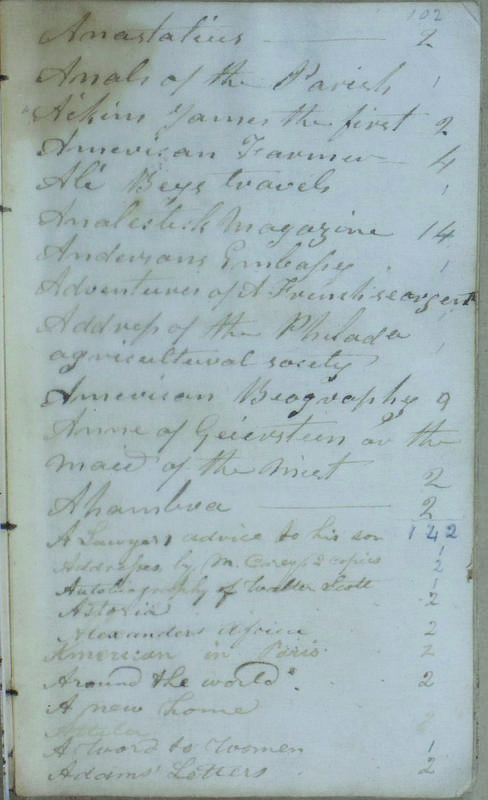 102
Anastatius 2
Anals of the Parish 1
Aikins James the first 2
American Farmer 4
Ali Beys travels 1
Analectick Magazine 14
Andersons Embassy 1
Adventures of A French seargent
Address of the Philada 1
agricultural socety
American Beography 9
Anne of Geierstein or the
maid of the mist 2
Ahambra 2
A Lawyers advice to his son 142
1
Addresses by M. Carey 2 copies 2
Autobiography of Walter Scott 1
Astoria 2
Alexanders Africa 2
American in Paris 2
Around the world 2
A new home
Attila 2
A Word to Women 1
Adams' Letters 2